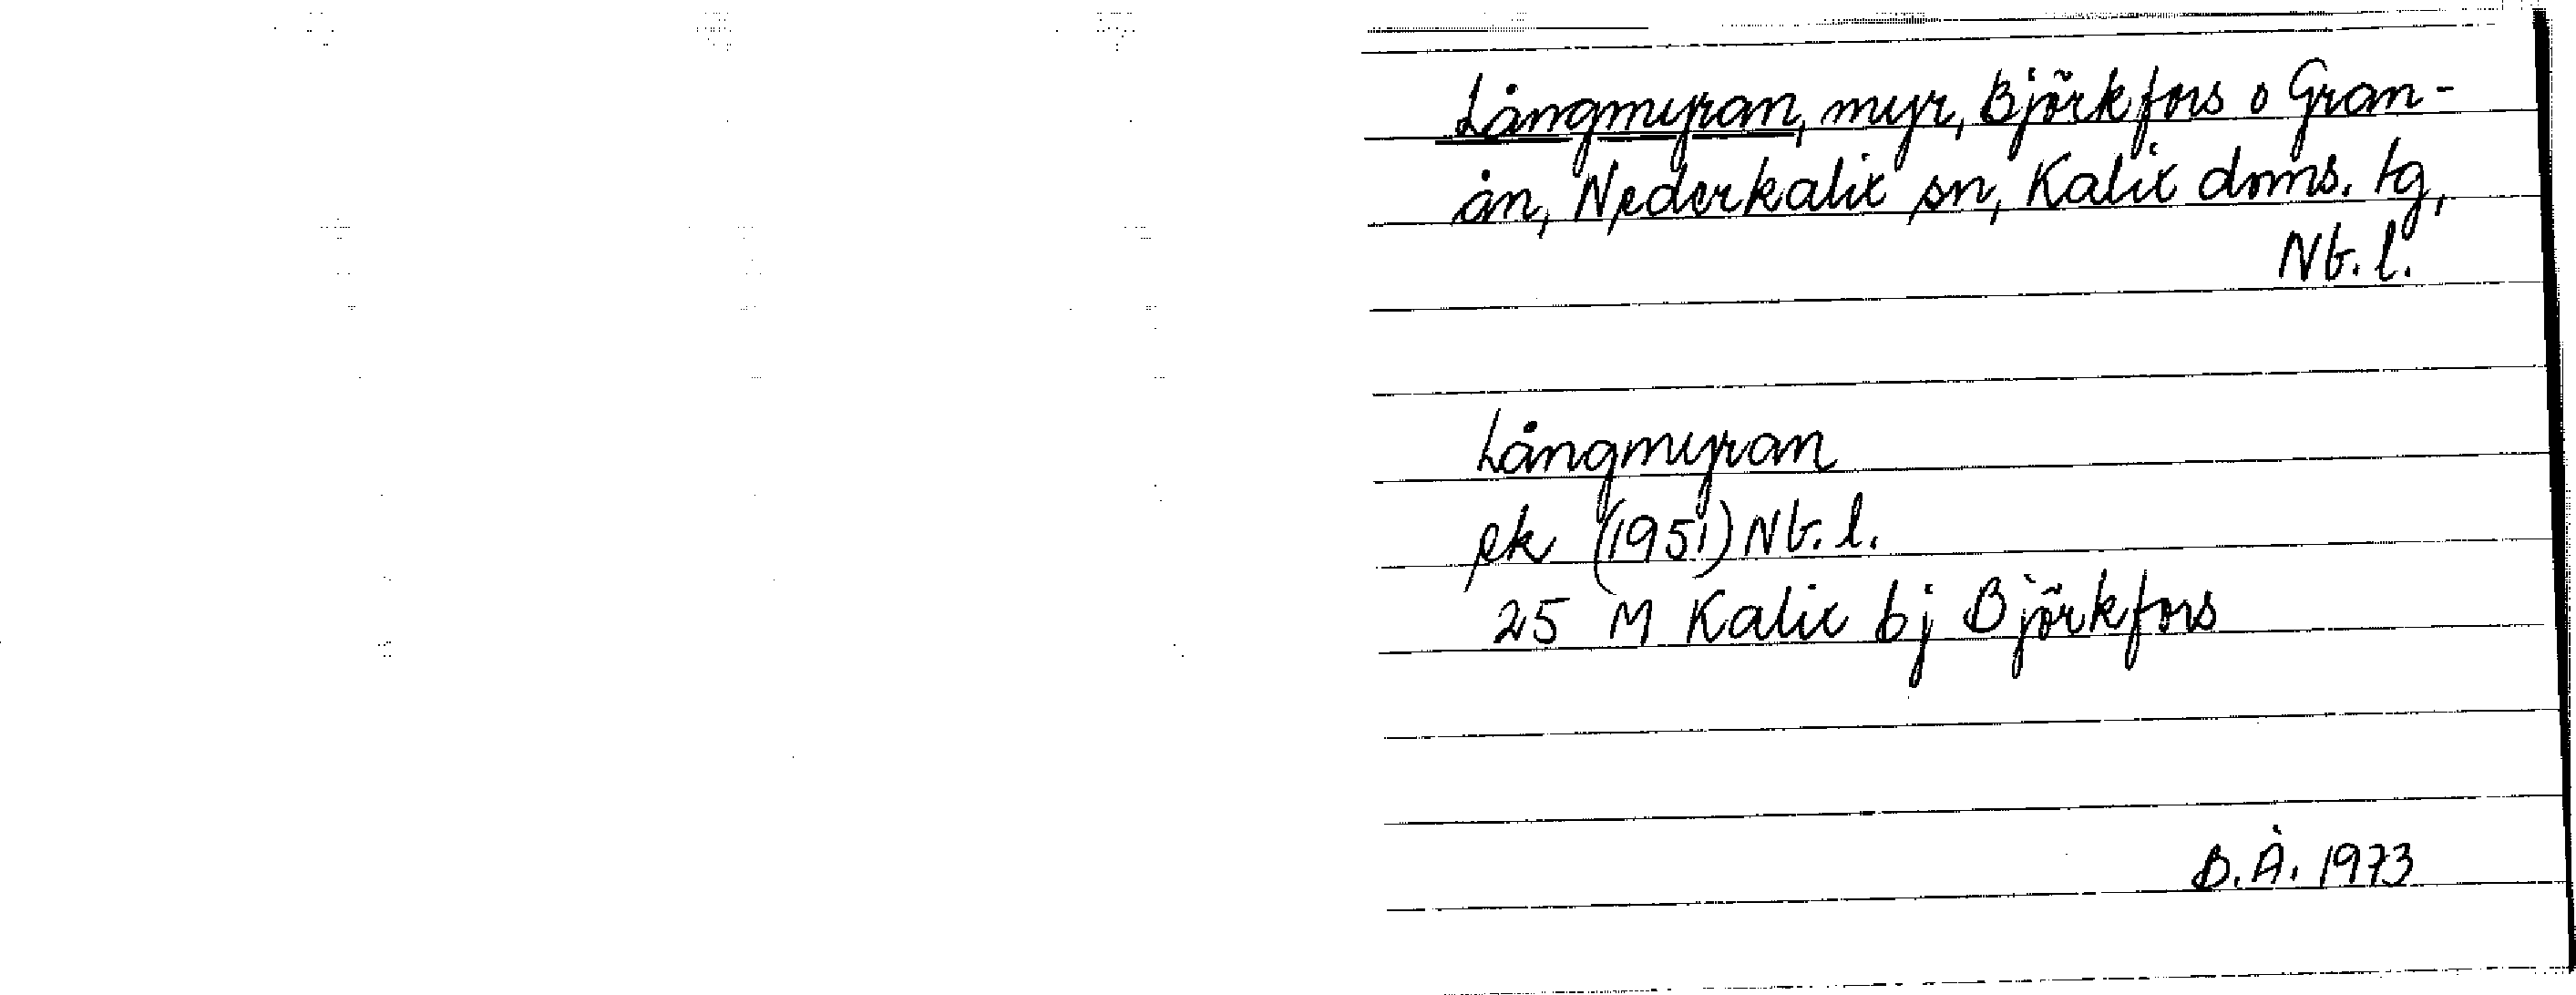 Långmyran, myr, Björkfors o Gran-
ån, Nederkalix sn, Kalix doms. tg,
Nb. l.
Långmyran
ek (1951) Nb. l.
25 M Kalix bj Björkfors
B.Å. 1973